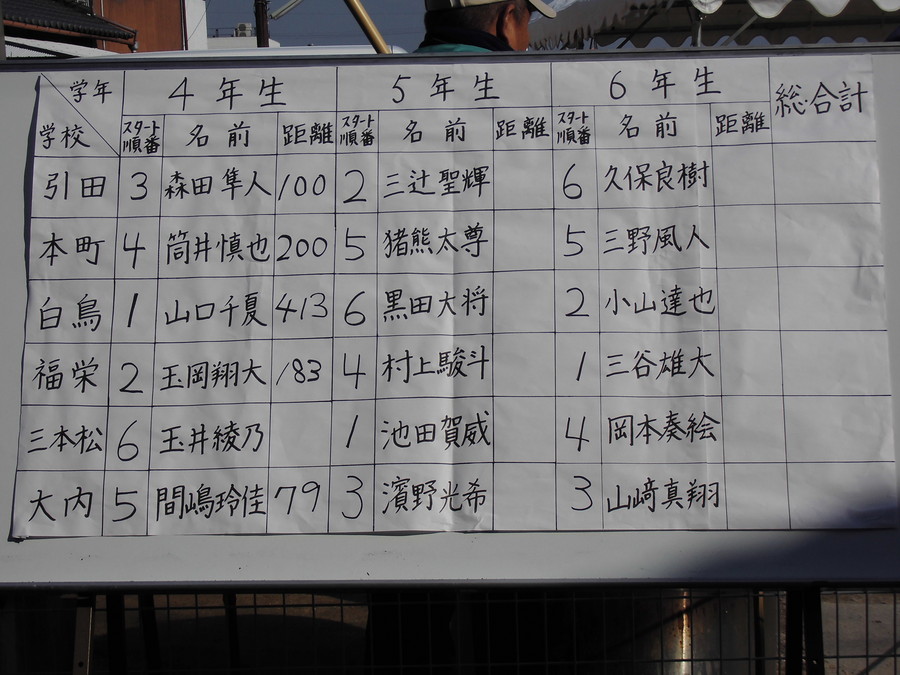 学年 4年生 5年生 6年生 総合計
学校 スタート順番 名前 距離 スタート順番 名前 距離 スタート順番 名前 距離
引田 3 森田隼人 100 2 三辻聖輝 6 久保良樹
本町 4 筒井慎也 200 5 猪熊太尊 5 三野風人
白鳥 1 山口千夏 413 6 黒田大将 2 小山達也
福栄 2 玉岡翔大 183 4 村上駿斗 1 三谷雄大
三本松 6 玉井綾乃 1 池田賀威 4 岡本奏絵
大内 5 間嶋玲佳 79 3 濱野光希 3 山﨑真翔